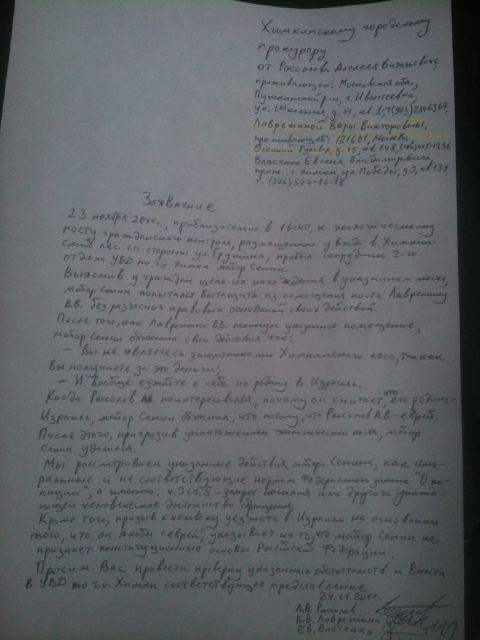 Химкинскому городскому
прокурору
от Рассолова Алексея Витальевича
проживающего: Московская обл.,
Пушкинский р-н, г. Ивантеевка,
ул. Школьная, д. 11, кв.
Лаврентиной Веры Викторовны,
прож: 121601, Москва,
Осенний бульвар, д. 15, кв. 148,
Власенко Евгения Владимировича,
прож.: г. Химки, ул. Победы, д. 3, кв 133
Заявление
23 ноября 2011г., приблизительно в 16-40, к экологическому
посту гражданского контроля, размещенному у входа в Химкин-
ский лес со стороны ул. прибыл сотрудник 2-го
отдела УВД по г.о. Химки майор Семин.
Выяснив у граждан цель их нахождения в указанном месте,
майор Семин попытался вытащить из помещения поста Лаврентину
В.В. без разъяснения правовых оснований своих действий.
После того, как Лаврентина В.В. покинула указанное помещение,
майор Семин объяснил свои действия так:
- Вы не являетесь защитниками Химкинского леса, так как
вы получаете за это деньги;
- И вообще езжайте к себе на родину в Израиль.
Когда Рассолов АВ. поинтересовался, почему он считает, что его родина
Израиль, майор Семин объяснил, что потому, что Рассолов АВ - еврей.
После этого, пригрозив уничтожением экологического поста, майор
Семин удалился.
Мы рассматриваем указанные действия майора Семина, как амо-
ральные и не соответствующие нормам Федерального закона "О по-
лиции", а именно: ч.3 ст.5 - запрет насилия или другого унижа-
ющего человеческое достоинство обращения.
Кроме того, призыв к человеку уезжать в Израиль на основании
того, что он якобы "еврей", указывает на то, что майор Семин не
признает конституционные основы Российской Федерации.
Просим Вас провести проверку указанных обстоятельств и внести
в УВД по г.о. Химки соответствующее представление
24.11.2011
А.В. Рассолов
В.В. Лаврентина
Е.В. Власенко